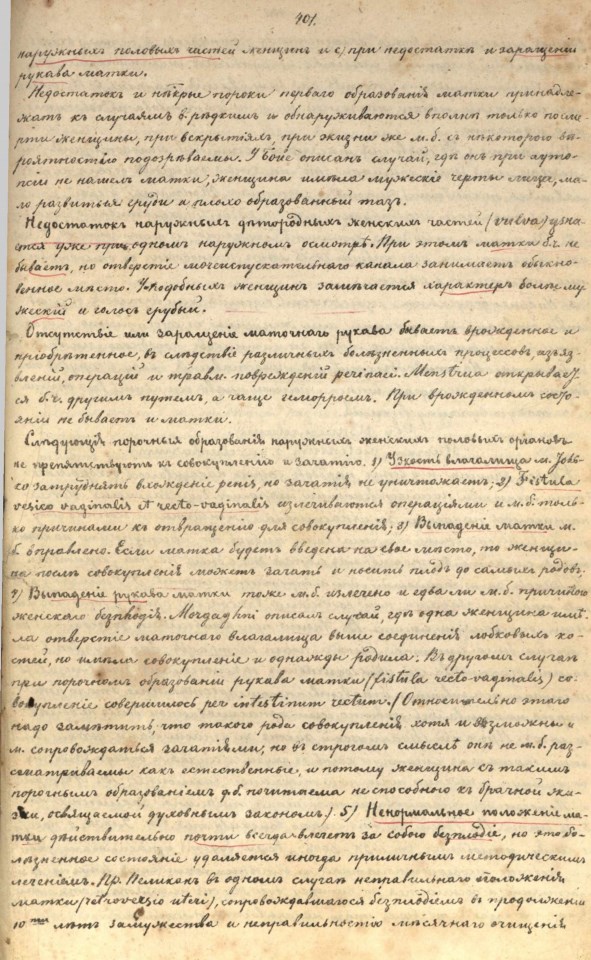 401.
наружныхъ половыхъ частей женщинъ и с) при недостаткѣ и заращеніи
рукава матки.
Недостатокъ и нѣкрые пороки перваго образованія матки принадле-
жатъ къ случаямъ б. рѣдкимъ и обнаруживаются вполнѣ только посмѣ-
рти женщины, при вскрытіяхъ, при жизни же м. б. съ нѣкоторого вѣ-
роятностію подозрѣваемы. У описанъ случай, гдѣ онъ при ауто-
псіи не нашелъ матки, женщина имѣла мужскіе черты лица, ма-
ло развитыя груди и плохо образованный тазъ.
Недостатокъ наружныхъ дѣтородныхъ женскихъ частей (vulva) узна-
ется уже при одномъ наружномъ осмотрѣ. При этомъ матки б. ч. не
бываетъ, но отверстіе мочеиспускательнаго канала занимаетъ обыкно-
венное мѣсто. У подобныхъ женщинъ замѣчается характеръ болѣе му-
жескій и голосъ грубый.
Отсутствіе или заращеніе маточнаго рукава бываетъ врожденное и
пріобрѣтенное, въ слѣдствіе различныхъ болѣзненныхъ процессовъ, изъяз-
вленій, операцій и травм. поврежденій. Menstrua открывает-
ся б. ч. другимъ путемъ, а чаще гемороемъ. При врожденномъ состо-
яніи не бываетъ и матки.
Слѣдующія порочныя образованія наружныхъ женскихъ половыхъ органовъ
не препятствуютъ къ совокупленію и зачатію. 1) Узкость влагалища м. толь-
ко затруднять вхожденіе penis, но зачатія не уничтожаетъ; 2) Fistula
vesico vaginalis et recto-vaginalis излечиваются операціями и м. б. толь-
ко причинами къ отвращенію для совокупленія; 3) Выпаденіе матки м.
б. вправлено. Если матка будетъ введена на свое мѣсто, то женщи-
на послѣ совокупленія можетъ зачать и носить плодъ до самыхъ родовъ.
4) Выпаденіе рукава матки тоже м. б. излечено и едва ли м. б. причиною
женскаго безплодія. Morgagni описалъ случай, гдѣ одна женщина имѣ-
ла отверстіе маточнаго влагалища выше соединенія лобковыхъ ко-
стей, но имѣла совокупленіе и однажды родила. Въ другомъ случаѣ
при порочномъ образованіи рукава матки (fistula recto-vaginalis) со-
вокупленіе совершилось per intestinum rectum. (Относительно этого
надо замѣтить, что такого рода совокупленія хотя и возможны и
м. сопровождаться зачатіями, но въ строгомъ смыслѣ онѣ не м. б. раз-
сматриваемы какъ естественные, и потому женщина съ такимъ
порочнымъ образованіемъ д. б. почитаема не способною къ брачной жи-
зни, освящаемой духовнымъ закономъ.) 5) Ненормальное положеніе ма-
тки дѣйствительно почти всегда влечетъ за собою безплодіе, но это бо-
лѣзненное состояніе удаляется иногда приличнымъ методическимъ
леченіемъ. Пр. Пеликанъ въ одномъ случаѣ неправильнаго положенія
матки (retroversio uteri), сопровождавшагося безплодіемъ въ продолженіи
10 тии лѣтъ замужества и неправильностію мѣсячнаго очищенія